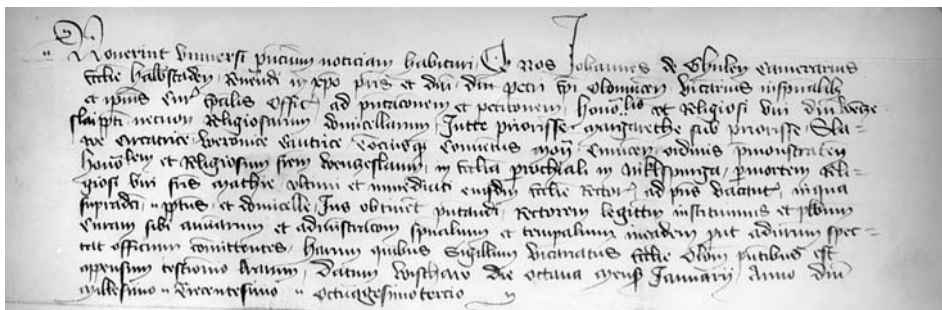 Noverint universi pncium noticiam habituri Q nos Johannes de Ghulen Camerarius
Ecclie Halbstaden, Revendi in xpo pris et dni, dni Petri Epi Olomucen vicarius in spualibz
et ipius Cur spalis offic, ad pntaconem et peticonem, honor.lis et Religiosi viri dni Wencze-
slai ppti necnon Religiosarum domicellarum, Jutte priorisse, Margarethe sub priorisse, Sla-
we Circatrice, Weronice Cantrice, tociusque Conventus mon Cunicen ordinis pmonstraten
honorlem et Religiosum frem Wenzeslaum, in Ecclia prochiali in Niklspurga, p mortem Reli-
giosi viri fris Mathie, ultimi et immediati eiusdem Ecclie Rector, ad pns vacante, in qua
supradci, pptus, et domicelle, Jus obtinet pntandi, Rectorem legittim instituimus et plbnm
Curam sibi animarum et administracom spualium et temporalium in eadem put ad nrum spec-
tat officium comittentes, harum quibus Sigillum vicariatus Ecclie Olom pntibus est
apensum testimonio lrarum, Datum Wischaw die octava mens Januarii, Anno dni
Millesimo Trecentesimo Octuagesimotercio